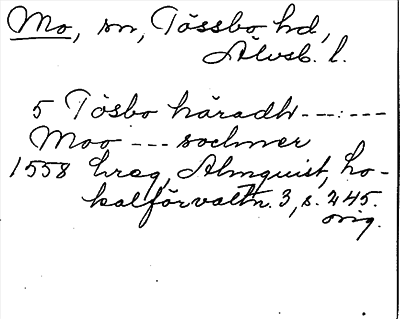 Mo, sn, Tössbo hd,
Älvsb. l.
5 Tösbo häradh ---:---
Moo --- sochner
1558 hreg, Almquist, Lo-
kalförvaltn. 3, s. 245.
orig.